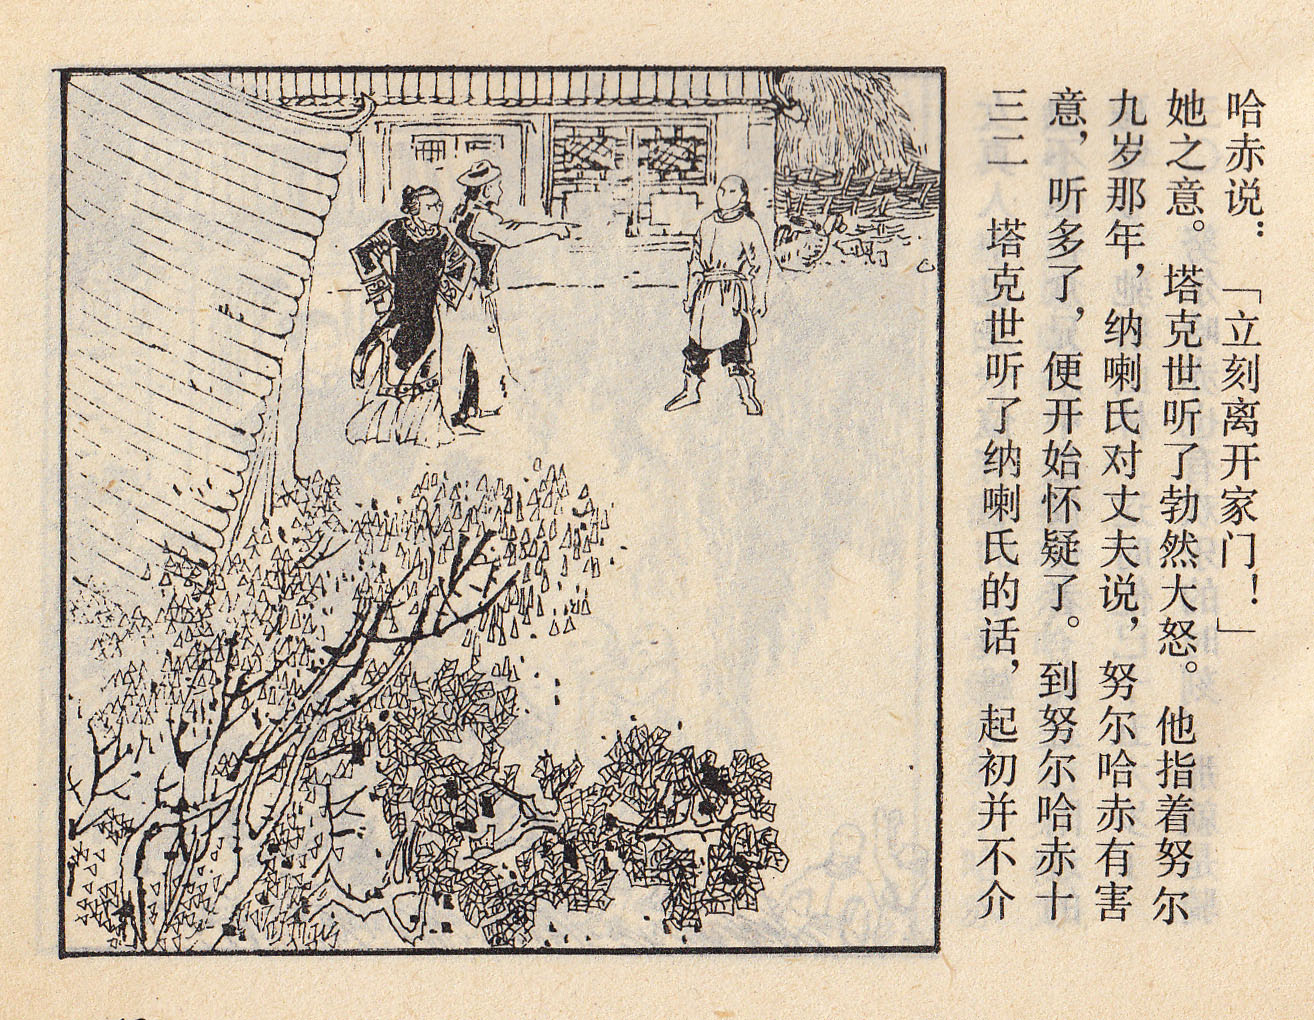 三二 塔克世听了纳喇氏的话，起初并不介
意，听多了，便开始怀疑了。到努尔哈赤十
九岁那年，纳喇氏对丈夫说，努尔哈赤有害
她之意。塔克世听了勃然大怒。他指着努尔
哈赤说：「立刻离开家门！」